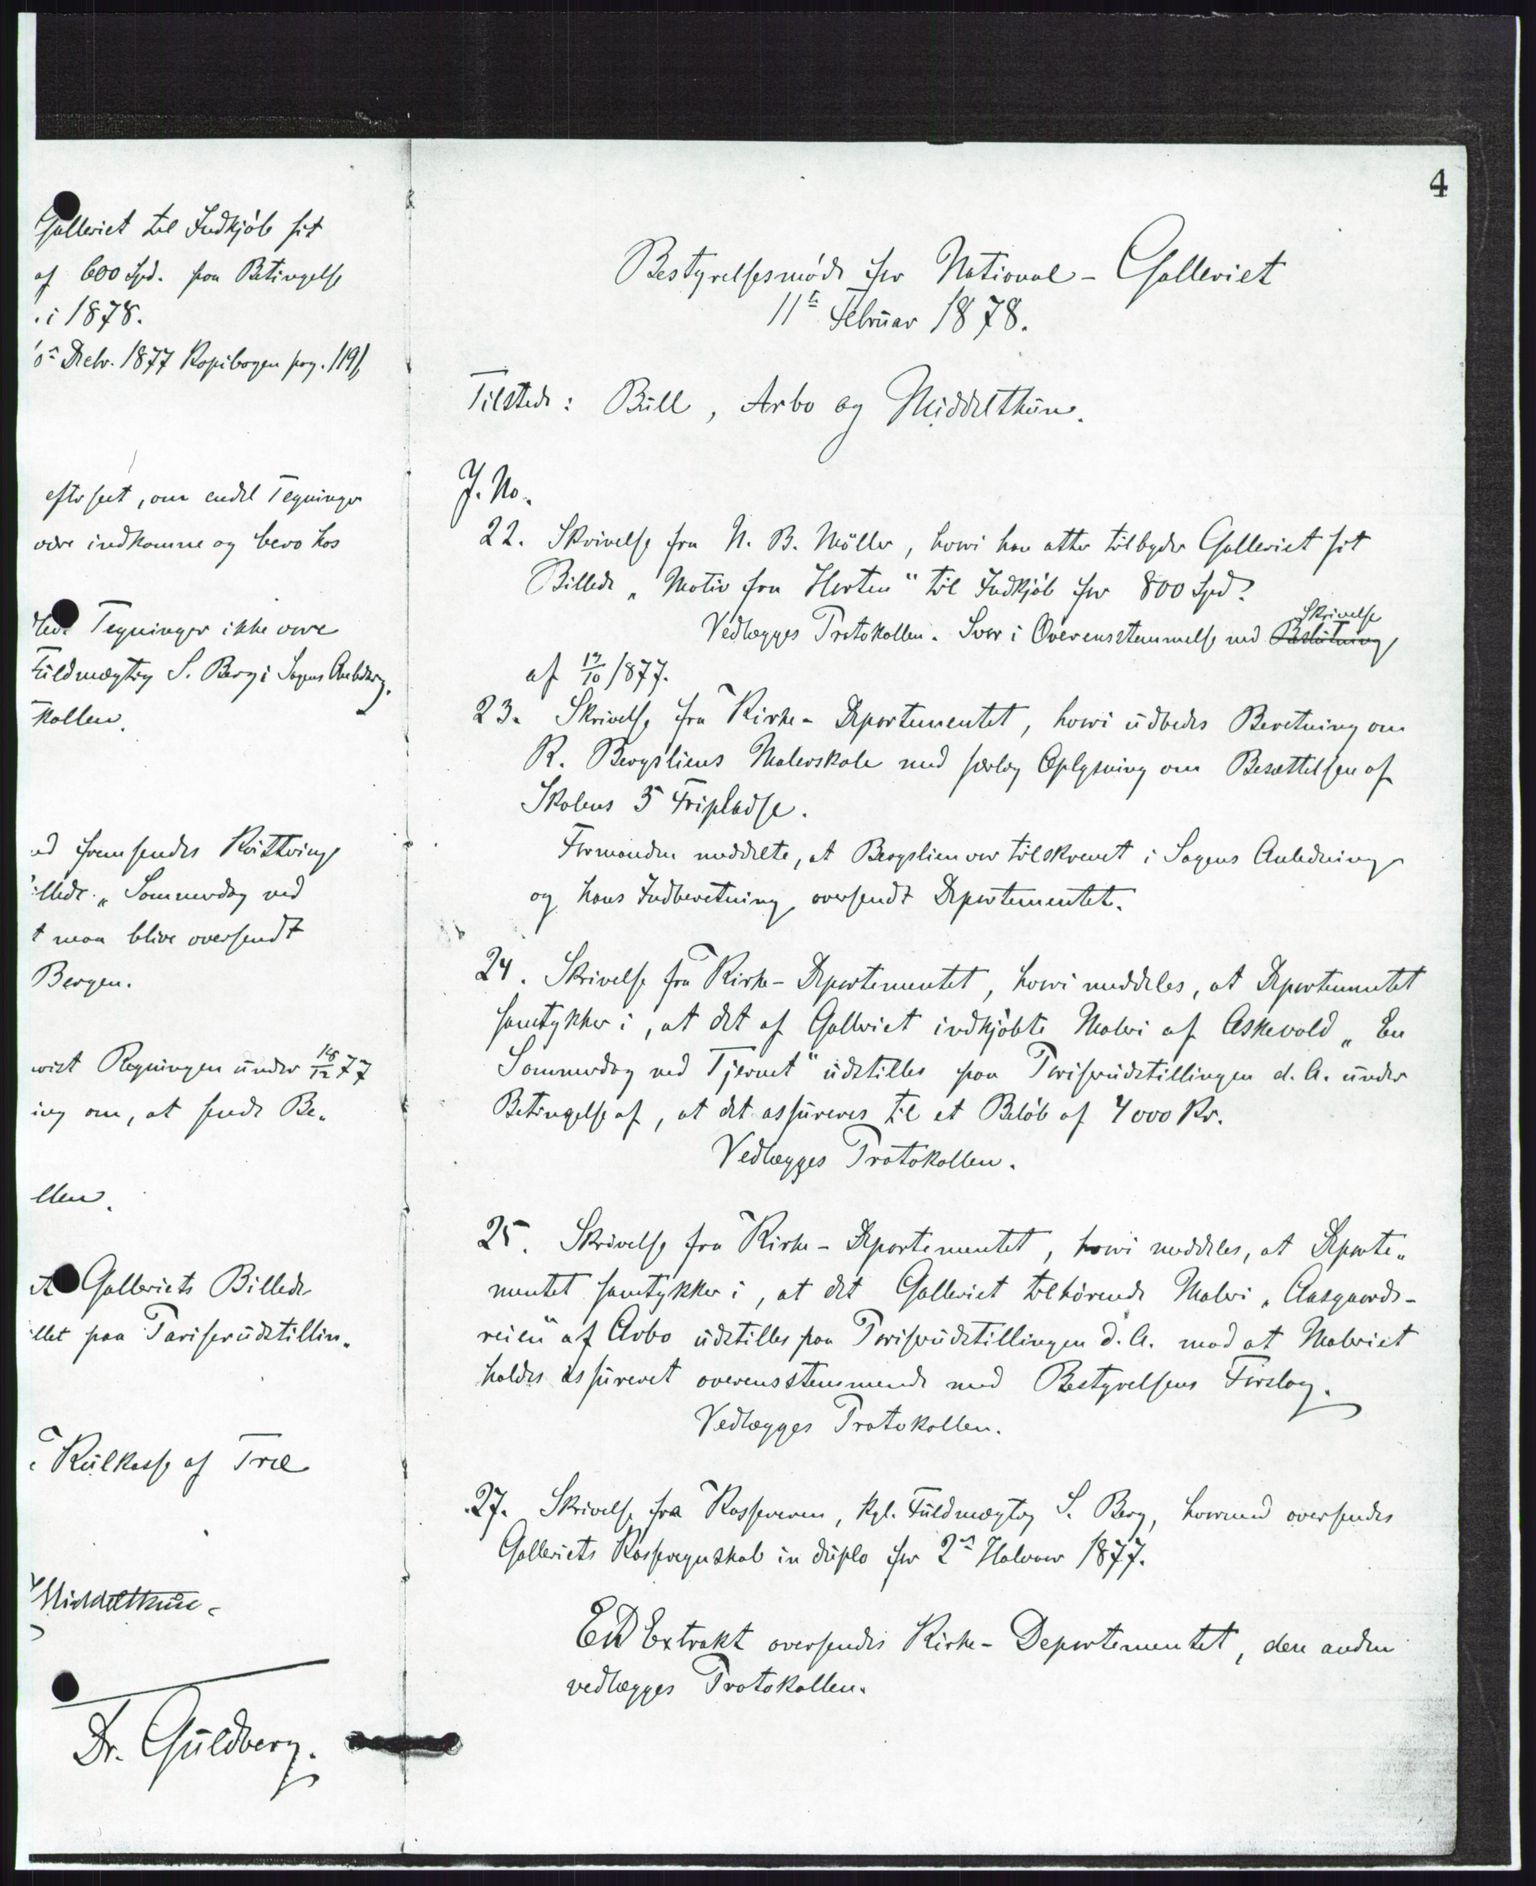 Galleriet til Indkjøb sit
af 600 Spd. paa Betingelse
i 1878.
Decbr. 1877 Kopibogen pag. 119/
efterseet, om endel Tegninger
være indkomne og bero hos
Tegninger ikke være
Fuldmægtig S. Berg i Sagens Anledng.
kollen.
fremsendes Kvittering
"Sommerdag ved
t maa blive oversendt
Bergen.
Regningen under 18/12 77
ing om, at sende Be-
llen.
at Galleriets Billede
llet paa Pariserudstillin-
Kulkasse af Træ
Middelthun.
Dr. Guldberg.
4
Bestyrelsesmøde for National-Galleriet
11te Februar 1878.
Tilstede: Bull, Arbo og Middelthun.
J. No.
22. Skrivelse fra N. B. Möller, hvori han atter tilbyder Galleriet sit
Billede „Motiv fra Horten" til Indkjøb for 800 Spd.
Skrivelse
Vedlægges Protokollen. Svar i Overensstemmelse med Beslutning
af 17/10 1877.
23. Skrivelse fra Kirke-Departementet, hvori udbedes Beretning om
K. Bergsliens Malerskole med særlig Oplysning om Besættelsen af
Skolens 5 Fripladse.
Formanden meddelte, at Bergslien var tilskrevet i Sagens Anledning
og hans Indberetning oversendt Departementet.
24. Skrivelse fra Kirke-Departementet, hvori meddeles, at Departementet
samtykker i, at det af Galleriet indkjøbte Maleri af Askevold „En
Sommerdag ved Tjernet" udstilles paa Pariserudstillingen d. A. under
Betingelse af, at det assureres til et Beløb af 4000 Kr.
Vedlægges Protokollen.
25. Skrivelse fra Kirke-Departementet, hvori meddeles, at Departe-
mentet samtykker i, at det Galleriet tilhørende Maleri „Aasgaards-
reien" af Arbo udstilles paa Pariserudstillingen d. A. mod at Maleriet
holdes assureret overensstemmende med Bestyrelsens Forslag.
Vedlægges Protokollen.
27. Skrivelse fra Kassereren, kgl. Fuldmægtig S. Berg, hvormed oversendes
Galleriets Kasseregnskab in duplo for 2det Halvaar 1877.
Et Extrakt oversendes Kirke-Departementet, den anden
vedlægges Protokollen.